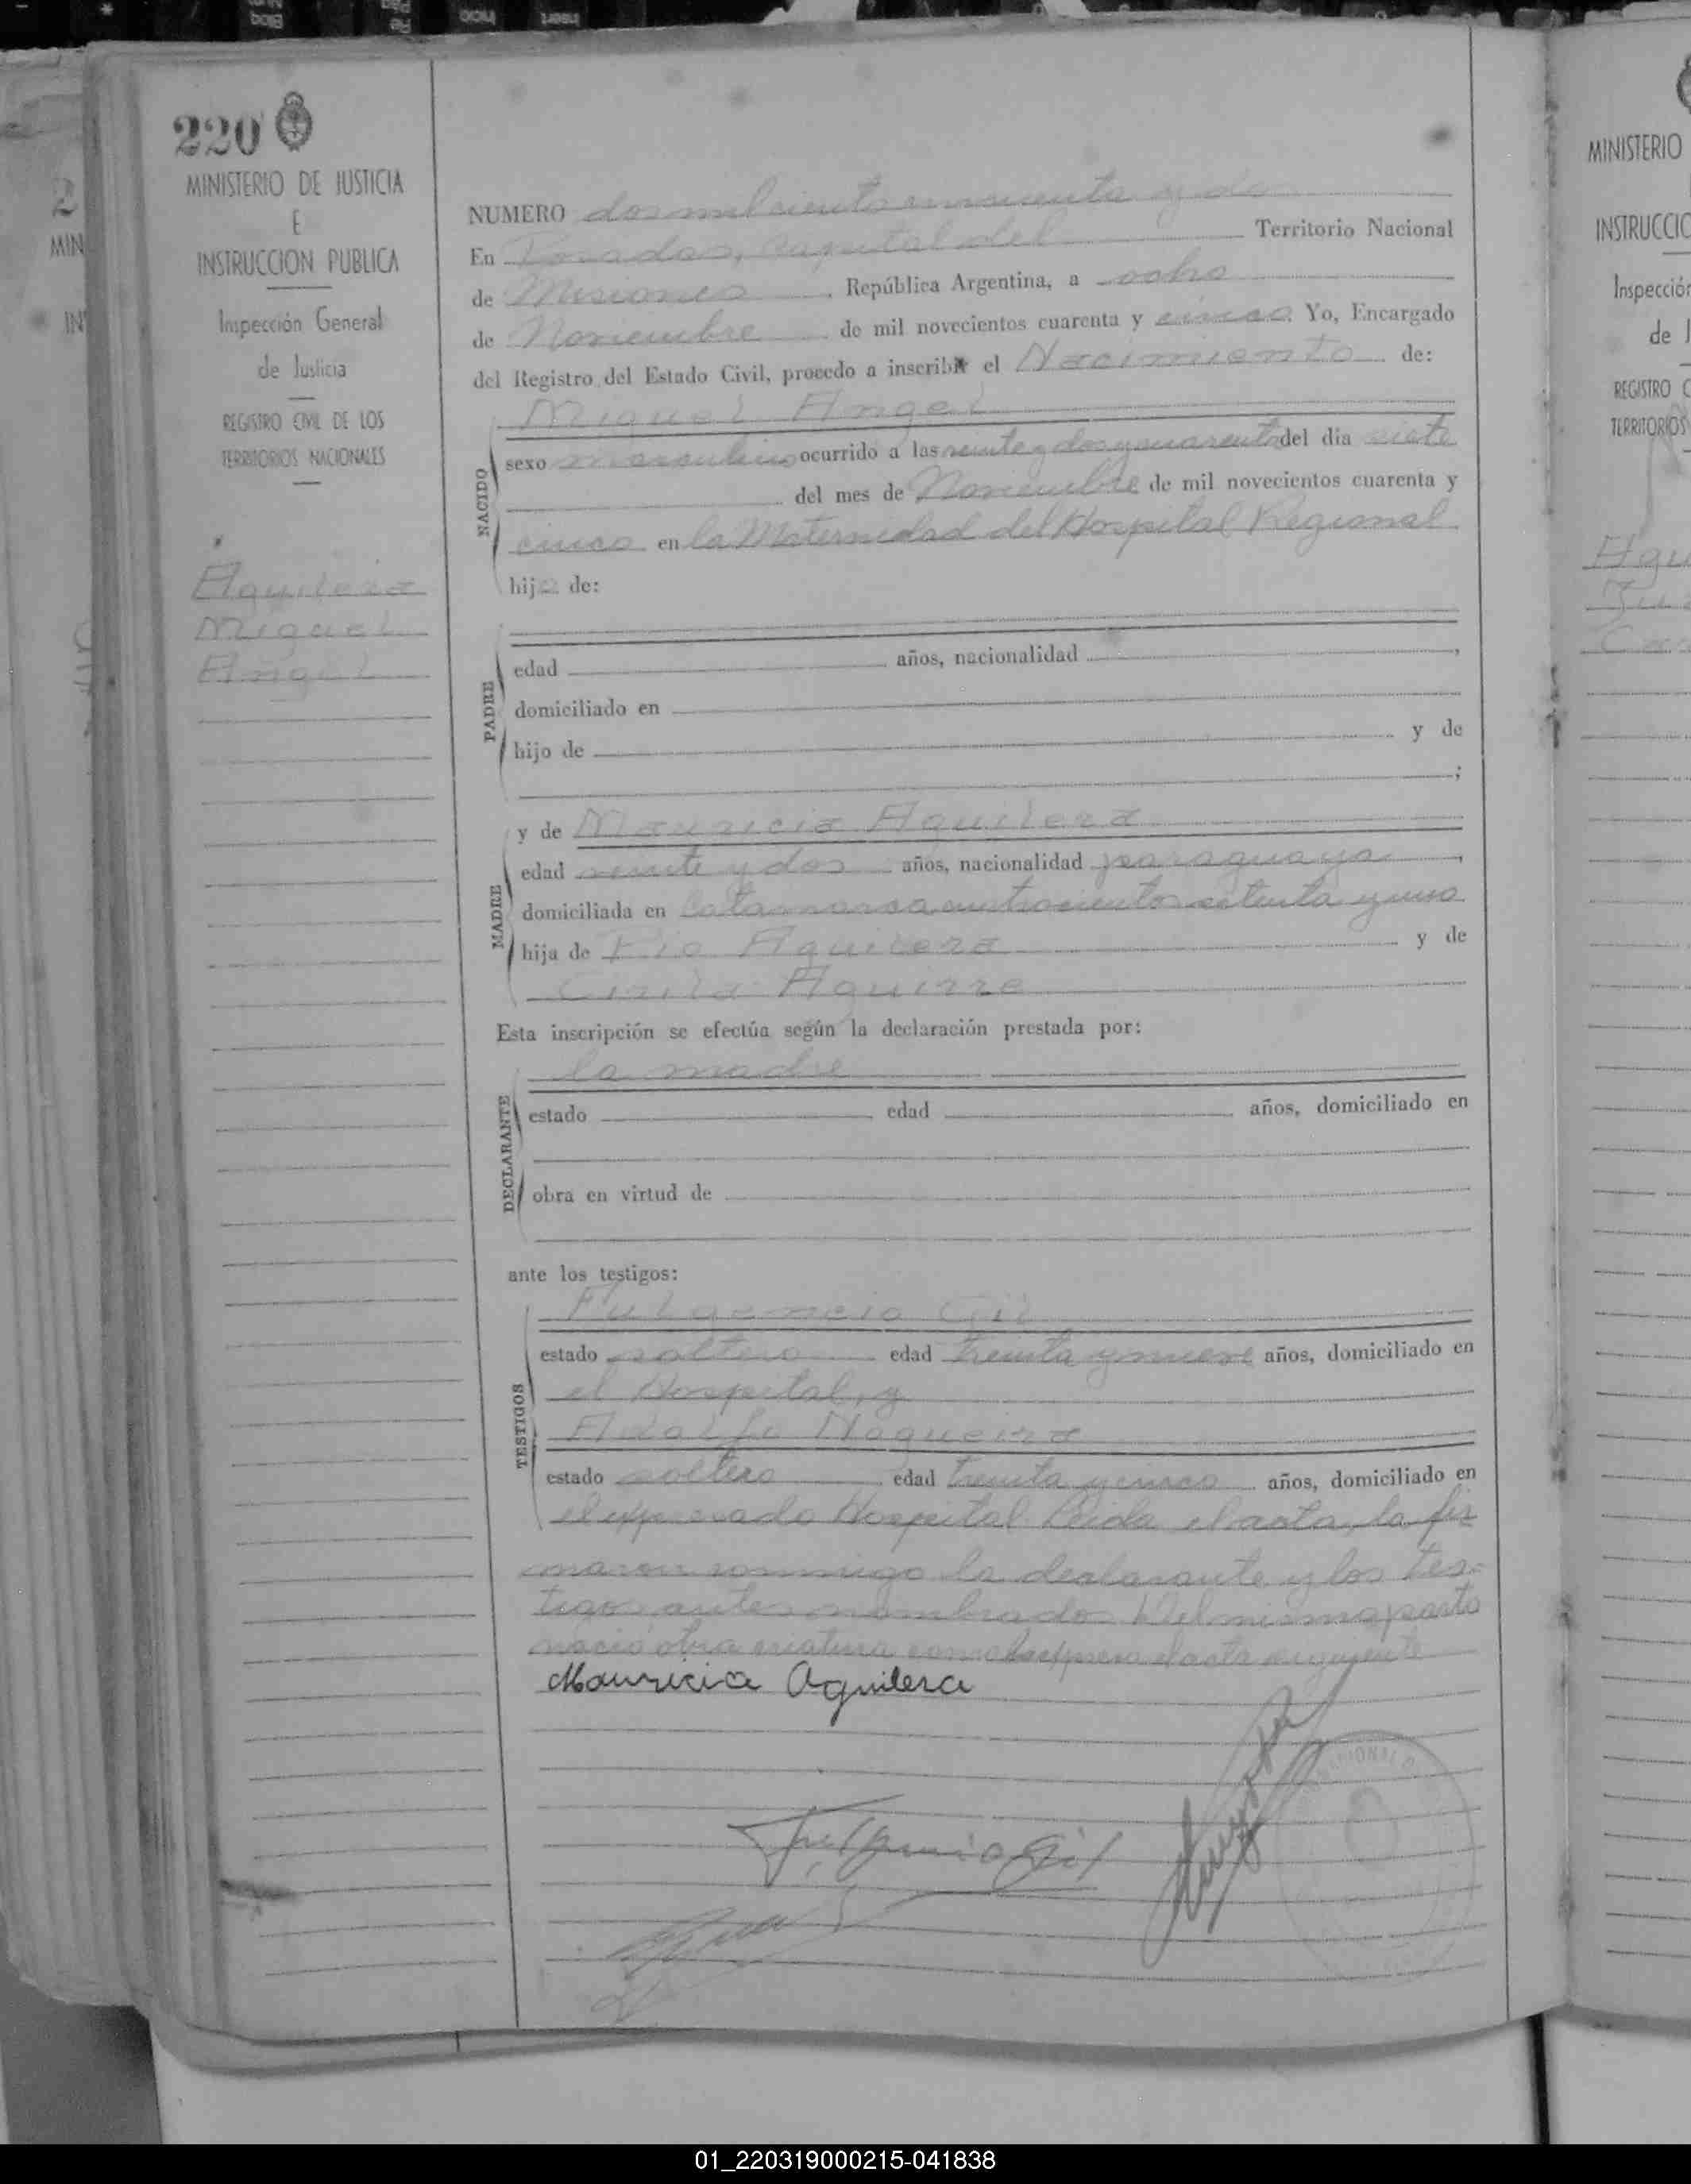 220
MINISTERIO DE JUSTICIA
E
INSTRUCCION PUBLICA
Inspección General
de Justicia
REGISTRO CIVIL DE LOS
TERRITORIOS NACIONALES
Aguilera
Miguel
Angel
NUMERO dos mil ciento noventa y dos
En Posadas, capital del Territorio Nacional
de Misiones, República Argentina, a ocho
de Noviembre de mil novecientos cuarenta y cinco Yo, Encargado
del Registro del Estado Civil, procedo a inscribir el Nacimiento de:
Miguel Angel
NACIDO
sexo masculino ocurrido a las veinte y dos y cuarenta del día siete
del mes de Noviembre de mil novecientos cuarenta y
cinco en la Maternidad del Hospital Regional
hijo de:
PADRE
edad años, nacionalidad ,
domiciliado en
hijo de y de
;
MADRE
y de Mauricia Aguilera
edad veinte y dos años, nacionalidad paraguaya ,
domiciliada en Catamarca cuatrocientos setenta y uno
hija de Pio Aguilera y de
Cirila Aguirre
Esta inscripción se efectúa según la declaración prestada por:
la madre
DECLARANTE
estado edad años, domiciliado en
obra en virtud de
ante los testigos:
TESTIGOS
Fulgencio Gil
estado soltero edad treinta y nueve años, domiciliado en
el Hospital, y
Adolfo Nogueira
estado soltero edad treinta y cinco años, domiciliado en
el expresado Hospital Leida el acta, la fir
maron conmigo la declarante y los tes-
tigos antes nombrados Del mismo parto
nació otra criatura como lo expresa el acta siguiente
Mauricia Aguilera
Fulgencio Gil
MINISTERIO
INSTRUCCIO
Inspección
de J
REGISTRO C
TERRITORIOS
Agu
01_220319000215-041838